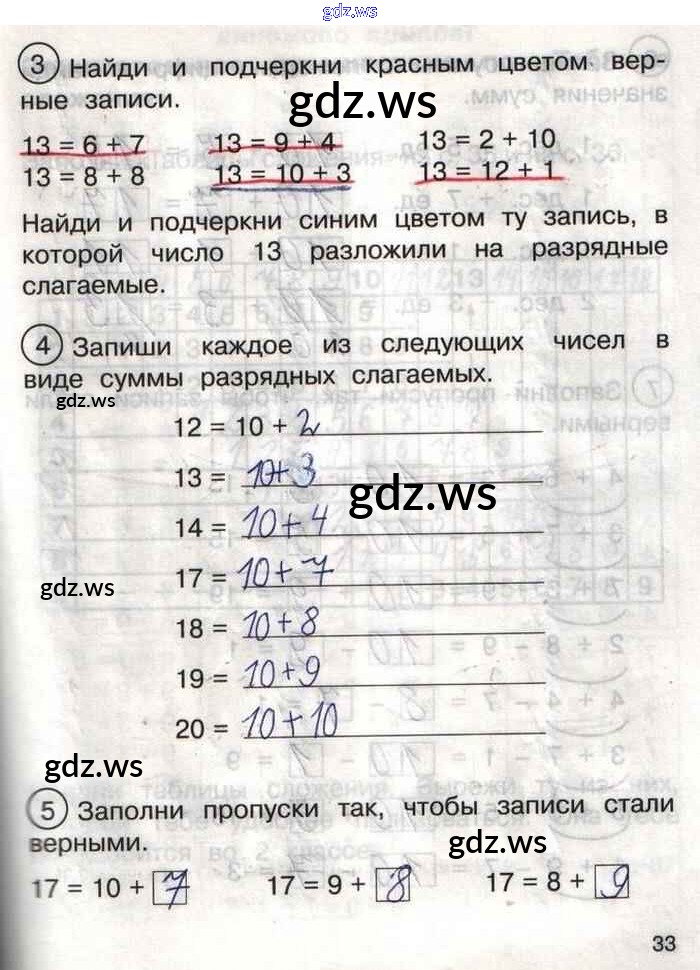 gdz.ws
3 Найди и подчеркни красным цветом вер-
ные записи.
gdz.ws
13 = 6 + 7 13 = 9 + 4 13 = 2 + 10
13 = 8 + 8 13 = 10 + 3 13 = 12 + 1
Найди и подчеркни синим цветом ту запись, в
которой число 13 разложили на разрядные
слагаемые.
4 Запиши каждое из следующих чисел в
виде суммы разрядных слагаемых.
gdz.ws
12 = 10 + 2
13 = 10+3
gdz.ws
14 = 10+4
17 = 10+7
gdz.ws
18 = 10+8
19 = 10+9
20 = 10+10
gdz.ws
5 Заполни пропуски так, чтобы записи стали
верными.
gdz.ws
17 = 10 + 7 17 = 9 + 8 17 = 8 + 9
33